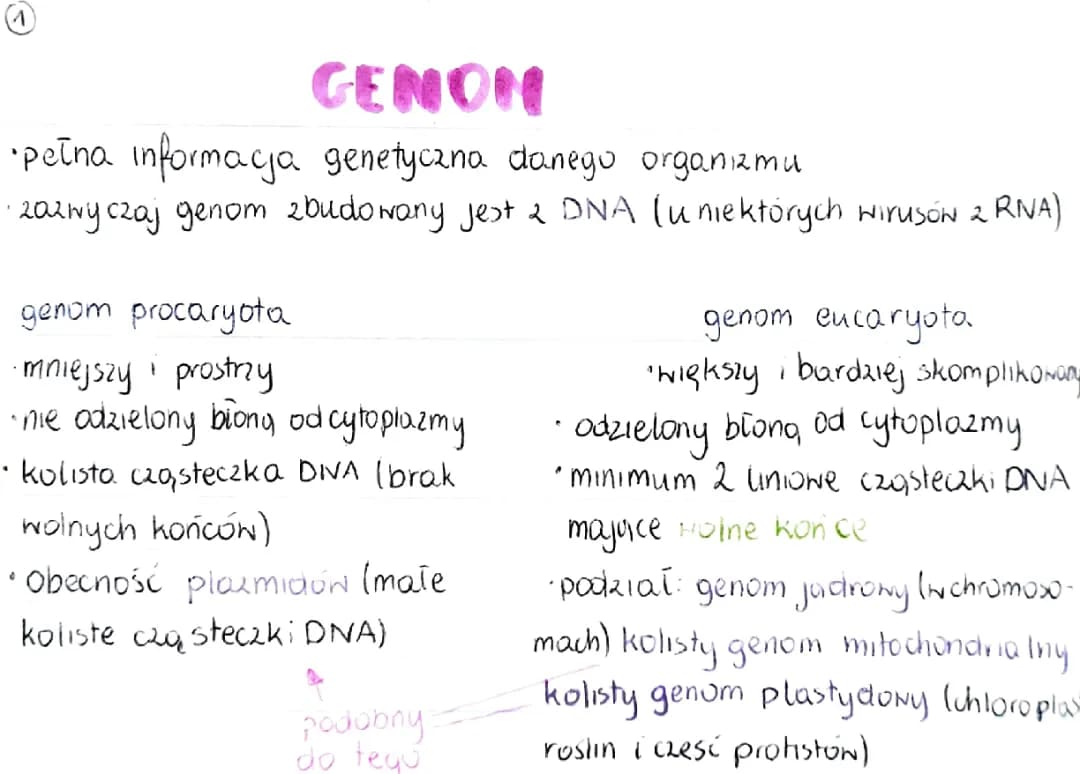 1
GENOM
•pełna informacja genetyczna danego organizmu
•zazwyczaj genom zbudowany jest z DNA (u niektórych wirusów z RNA)
genom procaryota
•mniejszy i prostrzy
•nie odzielony błoną od cytoplazmy
•kolista cząsteczka DNA (brak
wolnych końców)
•Obecność plazmidów (małe
koliste cząsteczki DNA)
genom eucaryota
•większy i bardziej skomplikowany
•odzielony błoną od cytoplazmy
•minimum 2 liniowe cząsteczki DNA
mające wolne końce
•podział: genom jądrowy (w chromoso-
mach) kolisty genom mitochondrialny
kolisty genom plastydowy (chloroplas
roślin i część protistów)
podobny
do tego